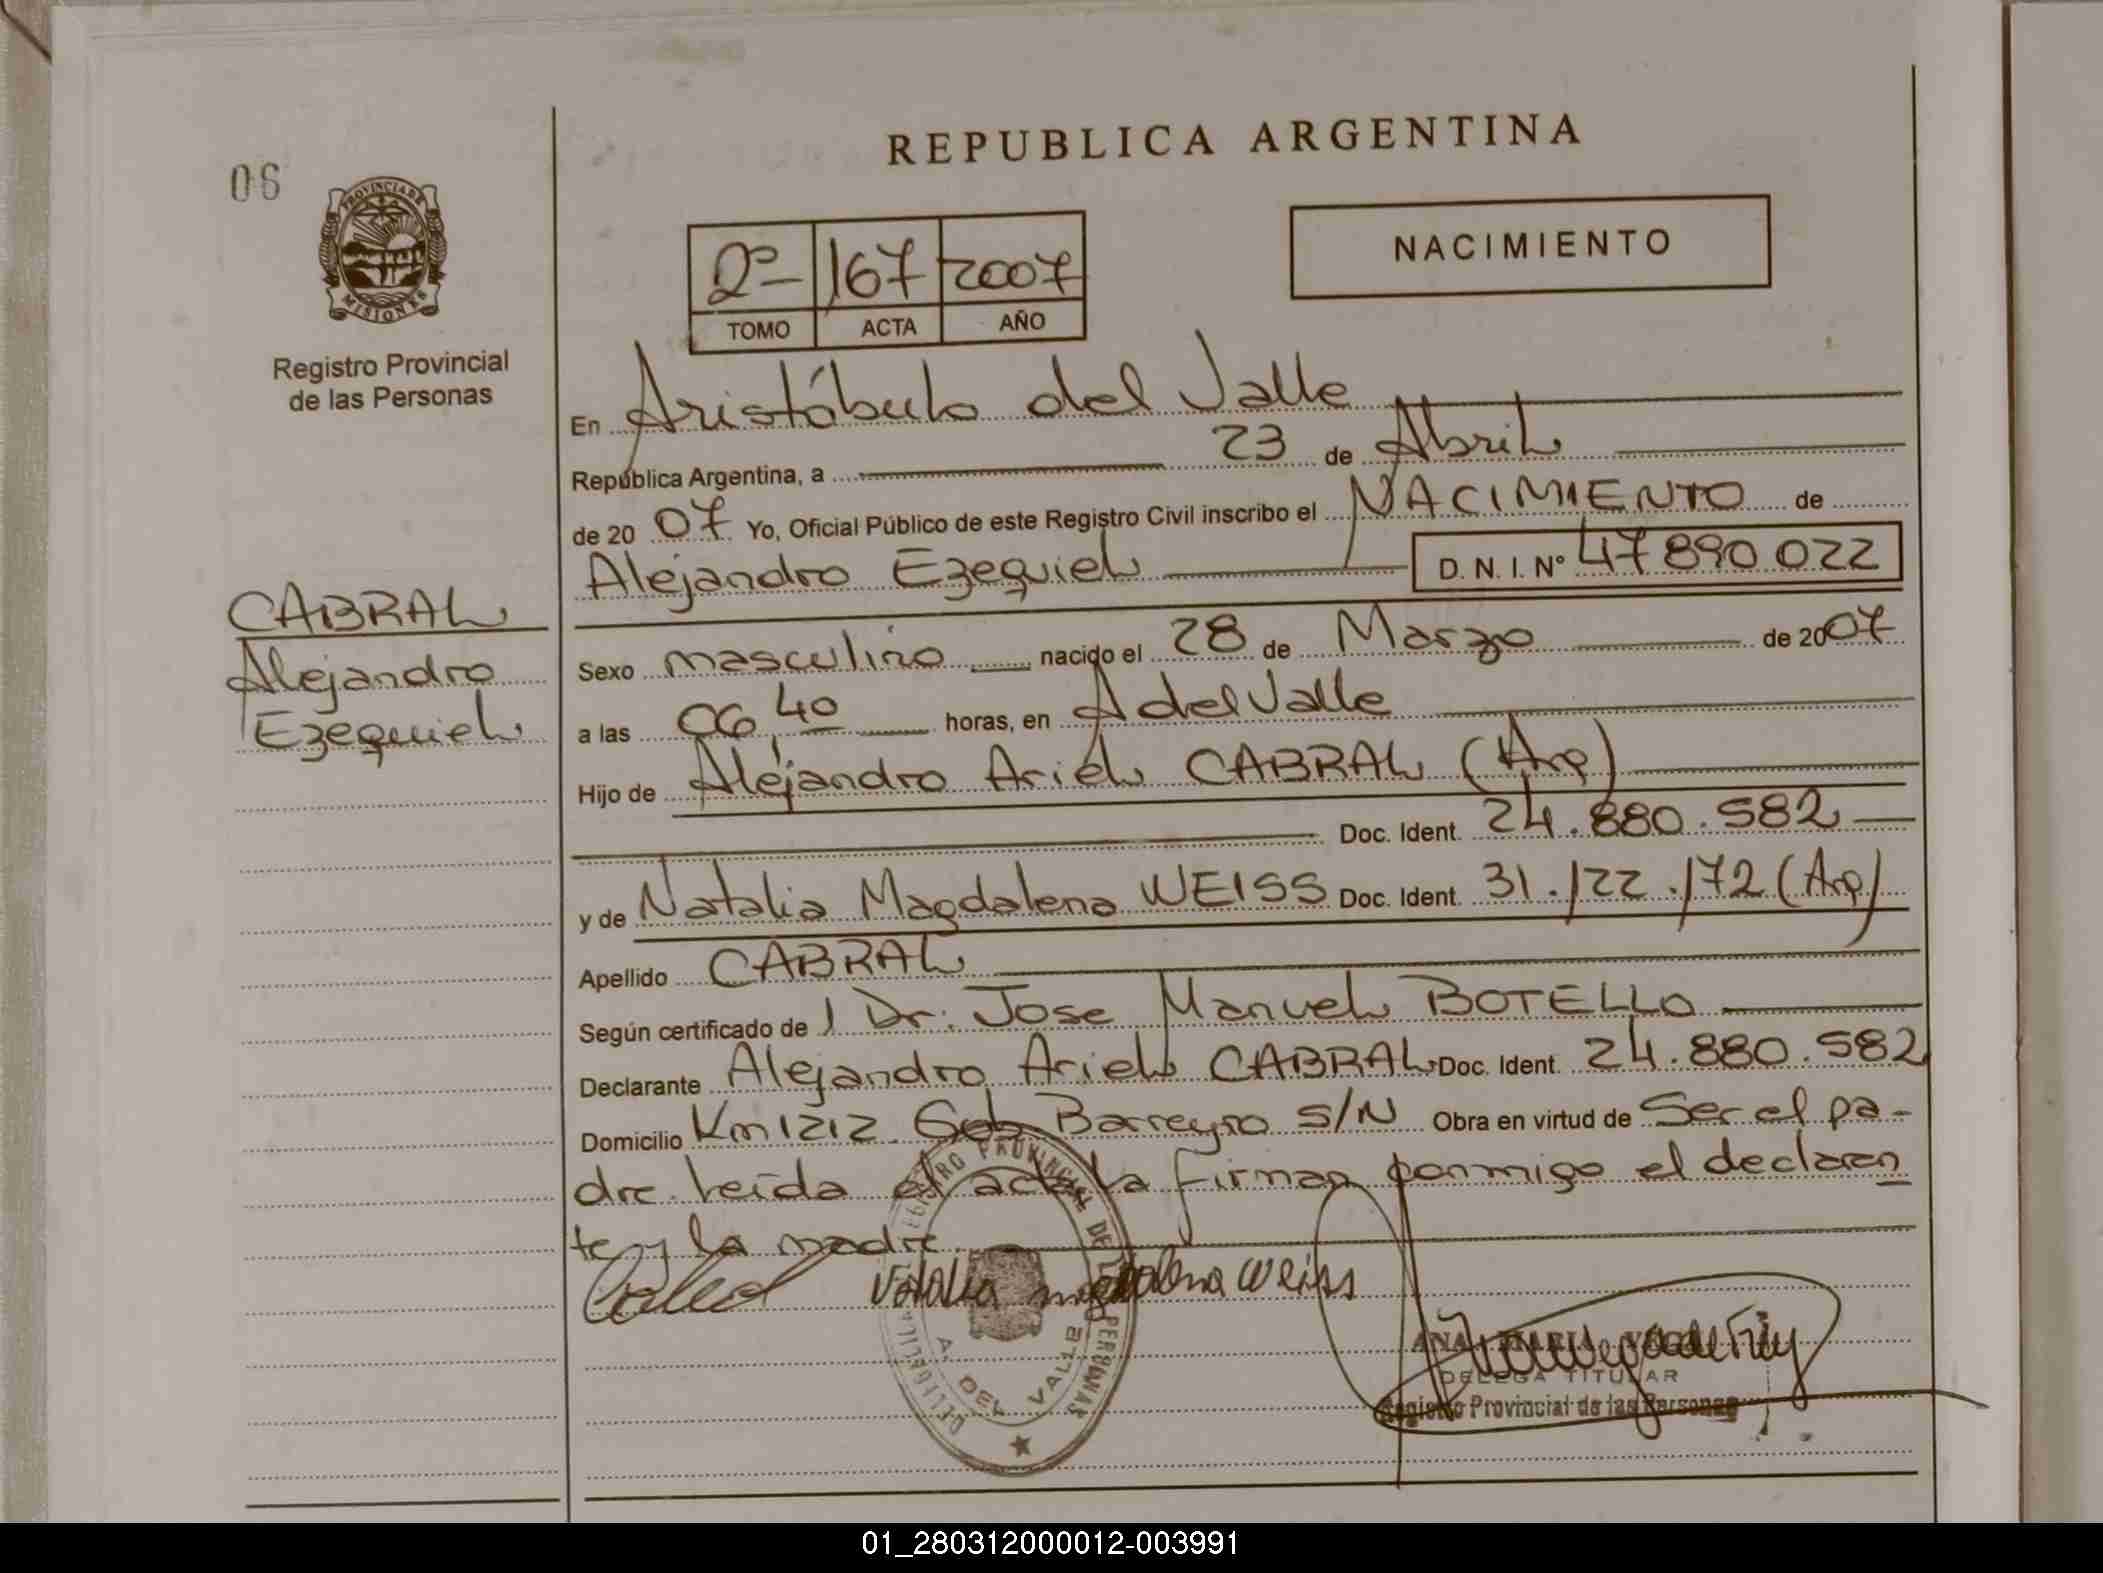 REPUBLICA ARGENTINA
06
PROVINCIA DE
MISIONES
Registro Provincial
de las Personas
NACIMIENTO
2º 167 2007
TOMO ACTA AÑO
En Aristóbulo del Valle
República Argentina, a 23 de Abril
de 20 07 Yo, Oficial Público de este Registro Civil inscribo el NACIMIENTO de
Alejandro Ezequiel D. N. I. Nº 47 890 022
CABRAL
Alejandro
Ezequiel
Sexo masculino nacido el 28 de Marzo de 2007
a las 06,40 horas, en A del Valle
Hijo de Alejandro Ariel CABRAL (Arg)
Doc. Ident. 24.880.582
y de Natalia Magdalena WEISS Doc. Ident. 31.122.172 (Arg)
Apellido CABRAL
Según certificado de Dr. Jose Manuel BOTELLO
Declarante Alejandro Ariel CABRAL Doc. Ident. 24.880.582
Domicilio Km 1212 Gob Barreyro S/N Obra en virtud de Ser el pa-
dre. Leída el acta la firman conmigo el declaran
te y la madre
Natalia magdalena weiss
REGISTRO PROVINCIAL DE LAS PERSONAS
A. DEL VALLE
ANA MARIA
DELEGA TITULAR
Registro Provincial de las Personas
01_280312000012-003991